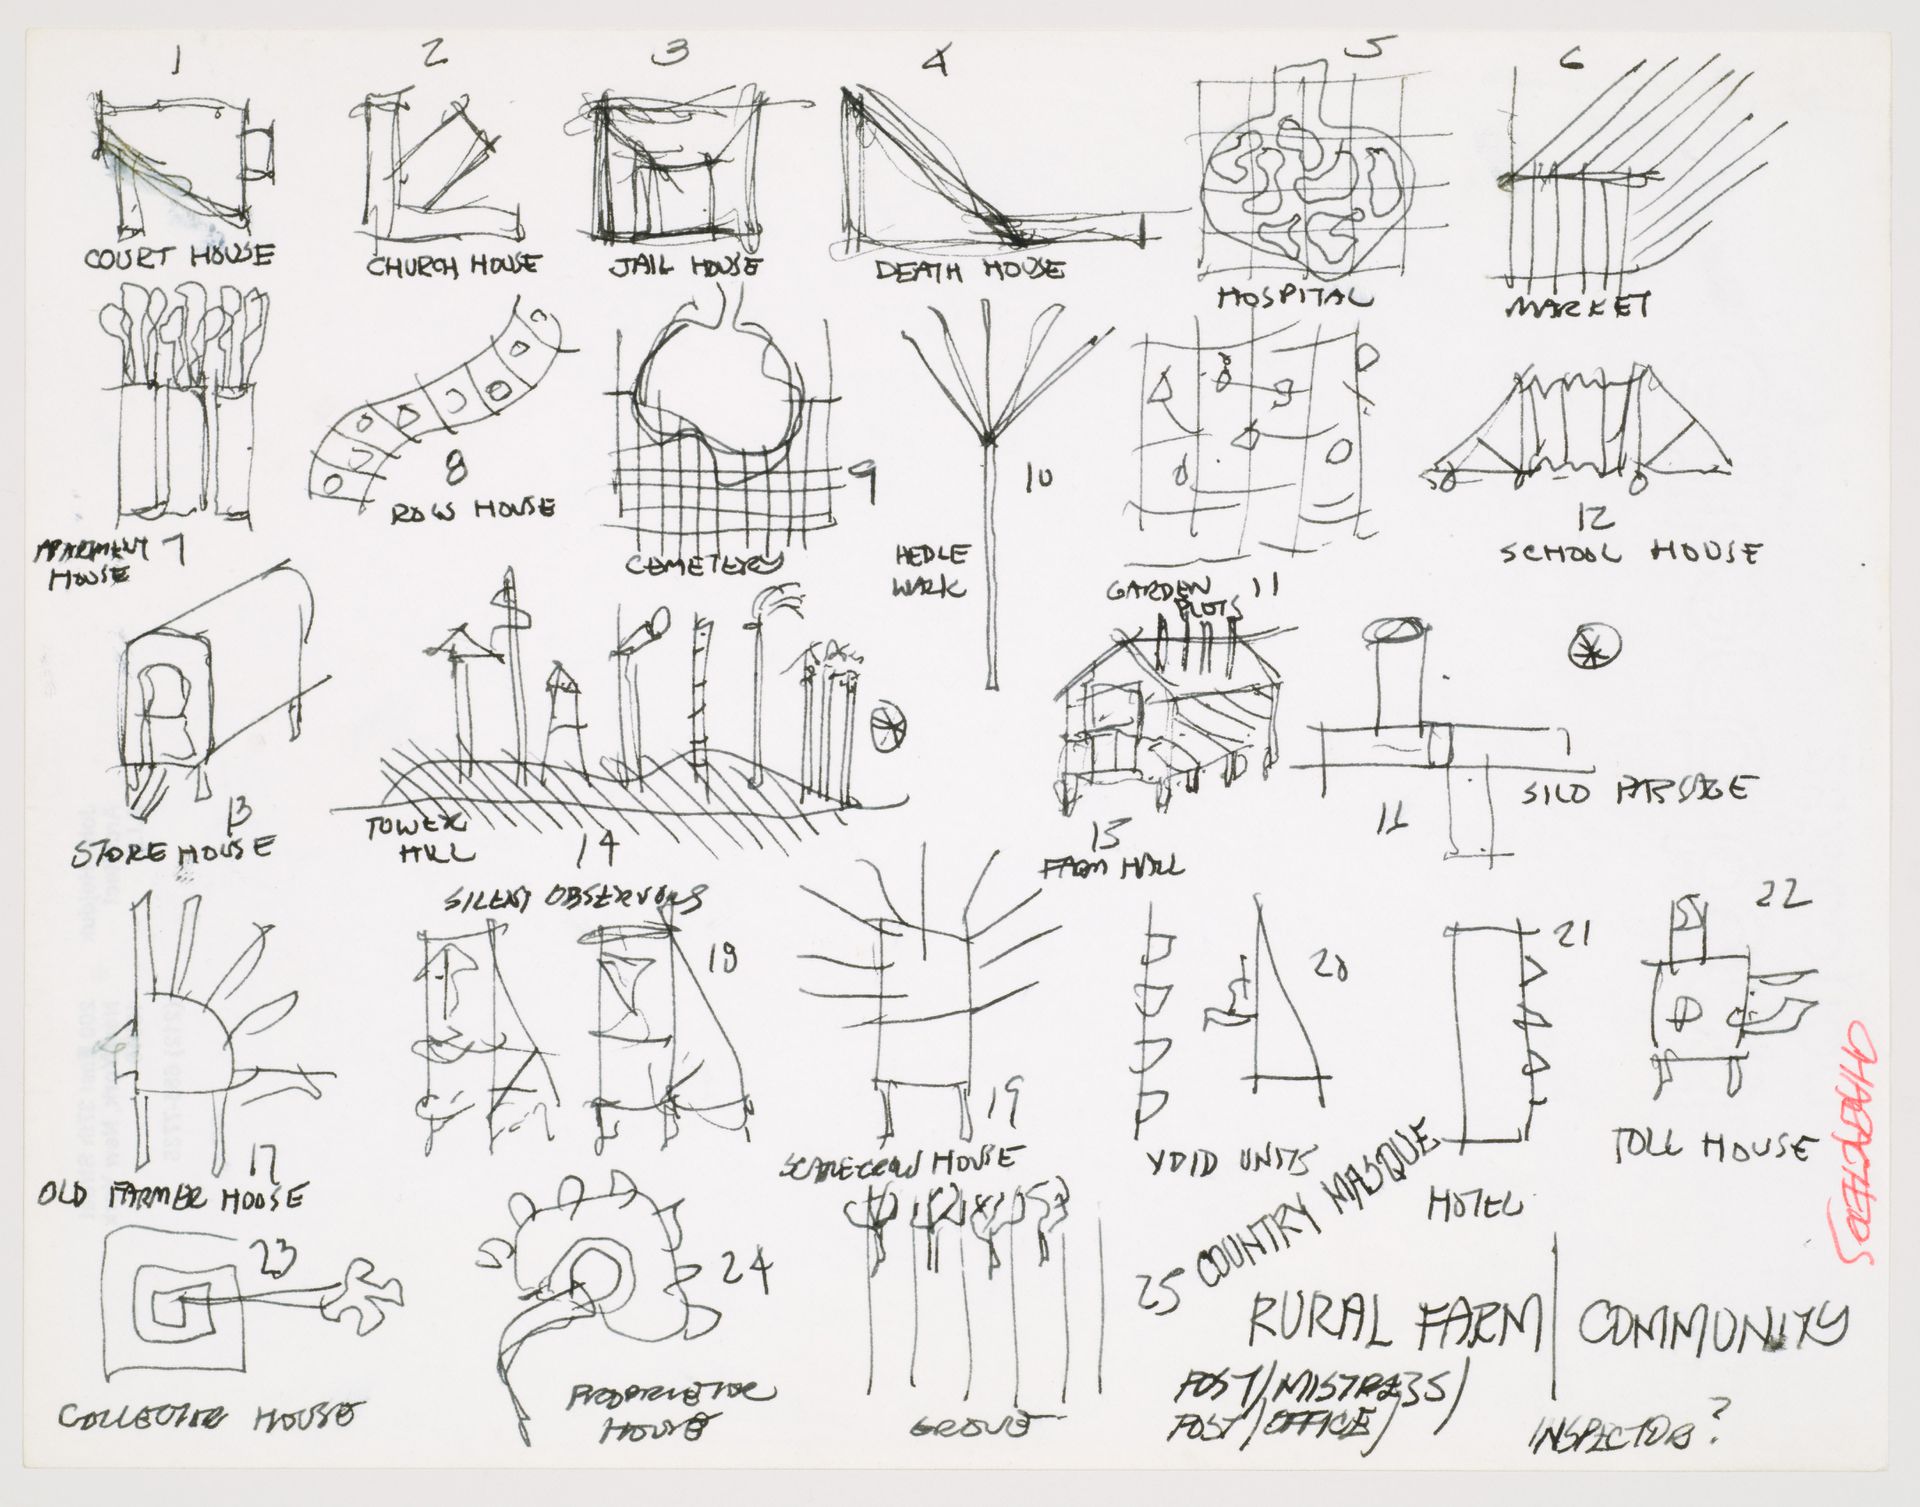 1
2
3
4
5
6
COURT HOUSE
CHURCH HOUSE
JAIL HOUSE
DEATH HOUSE
HOSPITAL
MARKET
APARTMENT 7
HOUSE
8
ROW HOUSE
9
CEMETERY
10
HEDGE
WALK
GARDEN 11
PLOTS
12
SCHOOL HOUSE
13
STORE HOUSE
TOWER
HILL
14
15
FARM HALL
16
SILO PASSAGE
17
OLD FARMER HOUSE
SILENT OBSERVORS
18
19
SCARECROW HOUSE
20
VOID UNITS
21
HOTEL
22
TOLL HOUSE
23
COLLECTOR HOUSE
24
PROPRIETOR
HOUSE
GROVE
25 COUNTRY MASQUE
RURAL FARM COMMUNITY
POST/MISTRESS/
POST/OFFICE/
INSPECTOR?